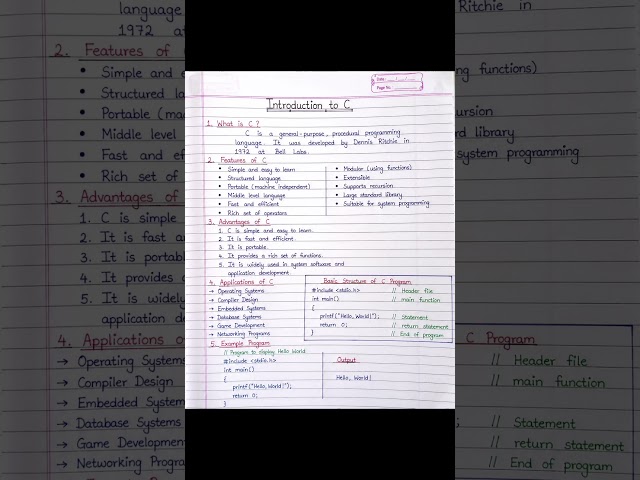 Date : __/__/__
Page No. :
Introduction to C
1. What is C?
C is a general-purpose, procedural programming
language. It was developed by Dennis Ritchie in
1972 at Bell Labs.
2. Features of C
• Simple and easy to learn
• Structured language
• Portable (machine independent)
• Middle level language
• Fast and efficient
• Rich set of operators
• Modular (using functions)
• Extensible
• Supports recursion
• Large standard library
• Suitable for system programming
3. Advantages of C
1. C is simple and easy to learn.
2. It is fast and efficient.
3. It is portable.
4. It provides a rich set of functions.
5. It is widely used in system software and
application development.
4. Applications of C
→ Operating Systems
→ Compiler Design
→ Embedded Systems
→ Database Systems
→ Game Development
→ Networking Programs
Basic Structure of C Program
#include <stdio.h> // Header file
int main() // main function
{
printf("Hello, World!"); // Statement
return 0; // return statement
} // End of program
5. Example Program
// Program to display Hello World
#include <stdio.h>
int main()
{
printf("Hello, World!");
return 0;
}
Output
Hello, World!
language
1972 at
2. Features of
• Simple and e
• Structured la
• Portable (mac
• Middle level
• Fast and eff
• Rich set of
3. Advantages of
1. C is simple
2. It is fast a
3. It is portab
4. It provides
5. It is widely
application d
4. Applications of
→ Operating Systems
→ Compiler Design
→ Embedded Systems
→ Database Systems
→ Game Developmen
→ Networking Progra
Ritchie in
ng functions)
ursion
d library
system programming
C Program
// Header file
// main function
// Statement
// return statement
// End of program